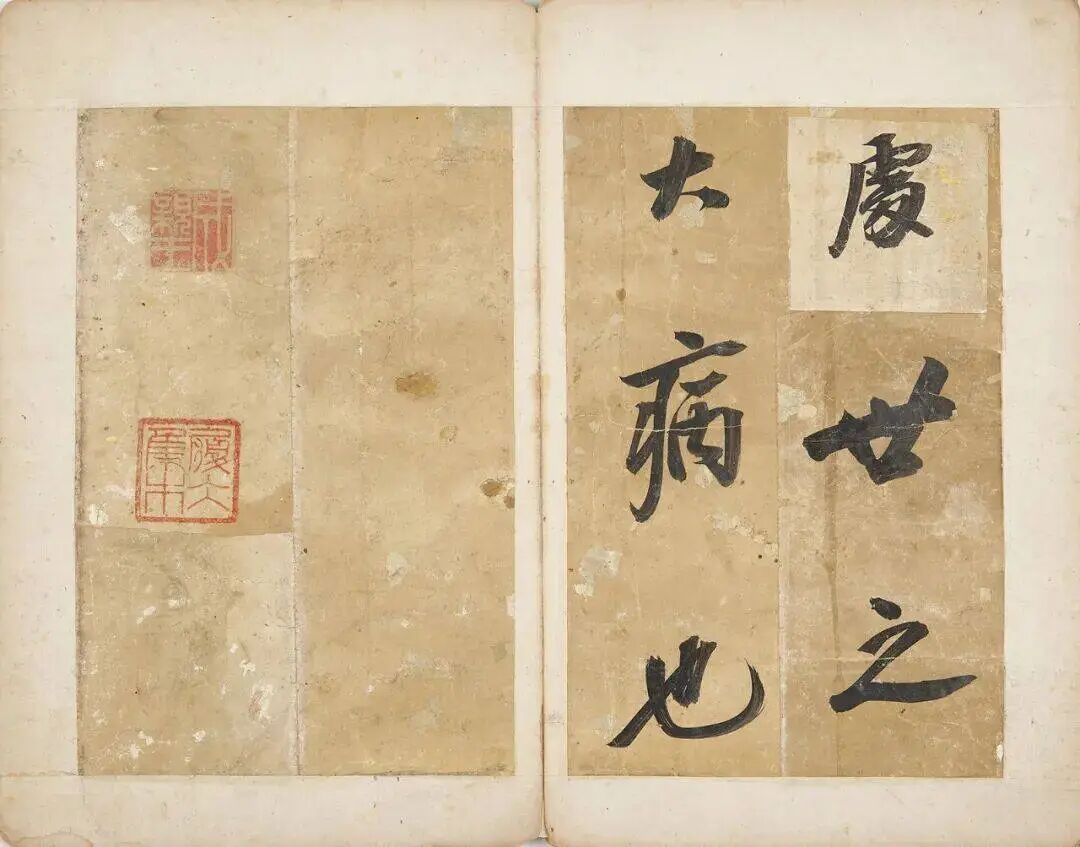 處世之
大病也